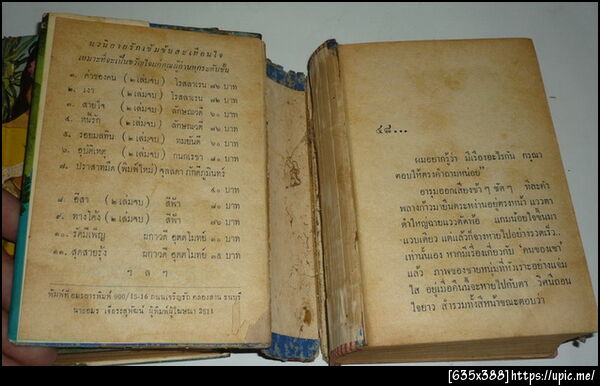 นวนิยายรักเข้มข้นสะเทือนใจ
เหมาะที่จะเป็นขวัญใจแก่คุณผู้อ่านทุกระดับชั้น
๑. ค่าของคน (๒ เล่มจบ) โรสลาเรน ๗๖ บาท
๒. เงา (๒ เล่มจบ) โรสลาเรน ๗๖ บาท
๓. สายใจ (๒ เล่มจบ) ลักษณวดี ๖๐ บาท
๔. หนี้รัก (๒ เล่มจบ) ลักษณวดี ๗๖ บาท
๕. รอยมลทิน (๒ เล่มจบ) ทมยันตี ๖๐ บาท
๖. อุบัติเหตุ (๒ เล่มจบ) กนกเรขา ๘๐ บาท
๗. ปราสาทมืด (พิมพ์ใหม่) จุลลดา ภักดีภูมินทร์
๔๐ บาท
๘. อีสา (๒ เล่มจบ) สีฟ้า ๘๐ บาท
๙. ทางโค้ง (๒ เล่มจบ) สีฟ้า ๘๐ บาท
๑๐. รัศมีเพ็ญ ผกาวดี อุตตโมทย์ ๓๐ บาท
๑๑. สุดสายรุ้ง ผกาวดี อุตตโมทย์ ๓๕ บาท
ฯ ล ฯ
พิมพ์ที่ อมรการพิมพ์ 900/15-16 ถนนเจริญรัถ คลองสาน ธนบุรี
นายอมร เจือรสสุพัฒน์ ผู้พิมพ์ผู้โฆษณา 2511
๔๘...
ผมอยากรู้ว่า มีเรื่องอะไรกัน กรุณา
ตอบให้ตรงคำถามหน่อย"
อารุมออกเสียงช้า ๆ ชัด ๆ ทีละคำ
พลางก้าวมายืนตระหง่านอยู่ตรงหน้า แววตา
ดำใหญ่ฉายแววคัดท้อ แกมน้อยใจขึ้นมา
แวบเดียว แต่แล้วก็จางหายไปอย่างรวดเร็ว..
เท่านั้นเอง หากมีเรื่องเกี่ยวกับ 'คนของเขา'
แล้ว ภาพของชายหนุ่มที่ทำเราะอย่างแจ่ม
ใส อยู่เมื่อคืนนี้จะหายไปกับตา วิศนีถอน
ใจยาว สำรวมทั้งสีหน้าขณะตอบว่า
[635x388] https://upic.me/